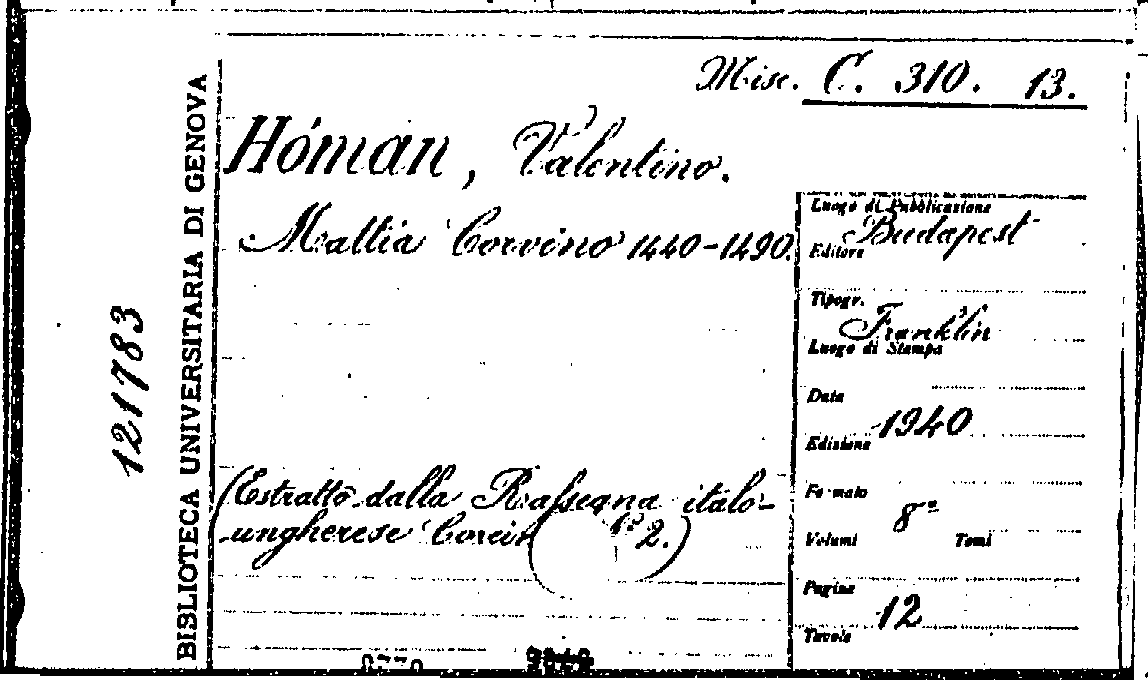 Misc. C. 310. 13.
Hóman, Valentino.
Mattia Corvino 1440-1490.
(Estratto dalla Rassegna italo-
ungherese Corvin 2.)
Luogo di Pubblicazione
Budapest
Editore
Tipogr.
Franklin
Luogo di Stampa
Data
1940
Edizione
Formato
8º
Volumi Tomi
Pagine
12
Tavole
BIBLIOTECA UNIVERSITARIA DI GENOVA
121783